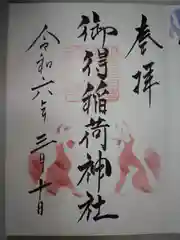 奉拝
御得稲荷神社
令和六年三月十日